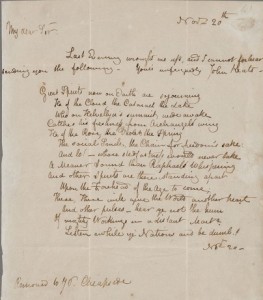 Novr 20th
My dear Sir -
Last Evening wrought me up, and I cannot forbear
sending you the following - Yours unfeignedly John Keats -
Great Spirits now on Earth are sojourning
He of the Cloud, the Cataract the Lake
Who on Helvellyn's summit wide awake
Catches his freshness from Archangel's wing
He of the Rose, the Violet the Spring
The social Smile, the Chain for freedom's sake
And lo! - whose stedfastness would never take
A Meaner Sound than Raphael's Whispering
And other Spirits are there standing apart
Upon the Forehead of the Age to come;
These, These will give the World another heart
And other pulses - hear ye not the hum
Of mighty Workings in a distant Mart?
Listen awhile ye Nations, and be dumb!
Novr 20 -
Removed to 76 Cheapside